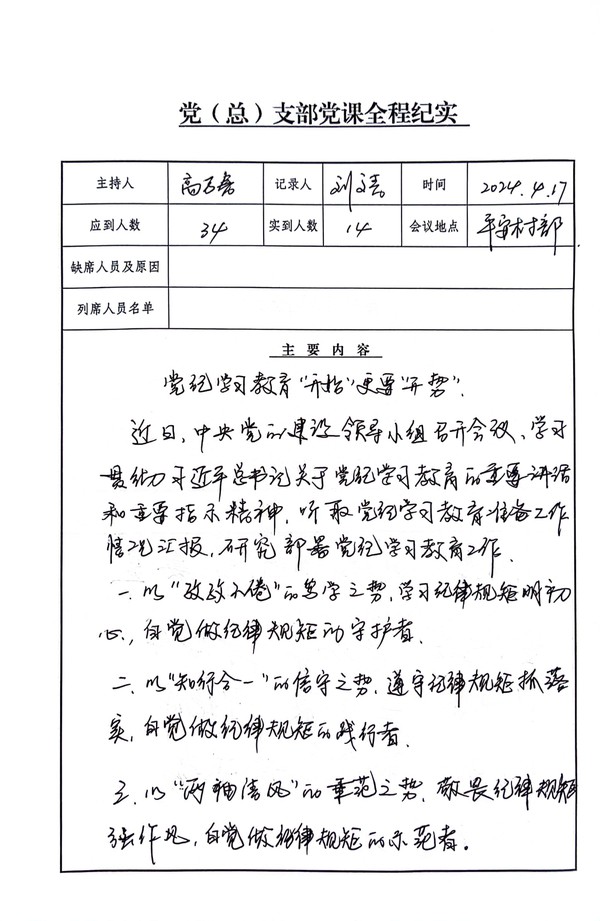 党（总）支部党课全程纪实
主持人 高 记录人 刘 时间 2024.4.17
应到人数 34 实到人数 14 会议地点 平安村部
缺席人员及原因
列席人员名单
主要内容
党纪学习教育“开始”更要“开势”.
近日，中央党的建设领导小组召开会议、学习
贯彻习近平总书记关于党纪学习教育的重要讲话
和重要指示精神，听取党纪学习教育准备工作
情况汇报，研究部署党纪学习教育工作.
一.以“孜孜不倦”的笃学之势，学习纪律规矩明初
心，自觉做纪律规矩的守护者.
二.以“知行合一”的信守之势.遵守纪律规矩抓落
实，自觉做纪律规矩的践行者.
三.以“两袖清风”的垂范之势，敬畏纪律规矩
强作风，自觉做纪律规矩的示范者。